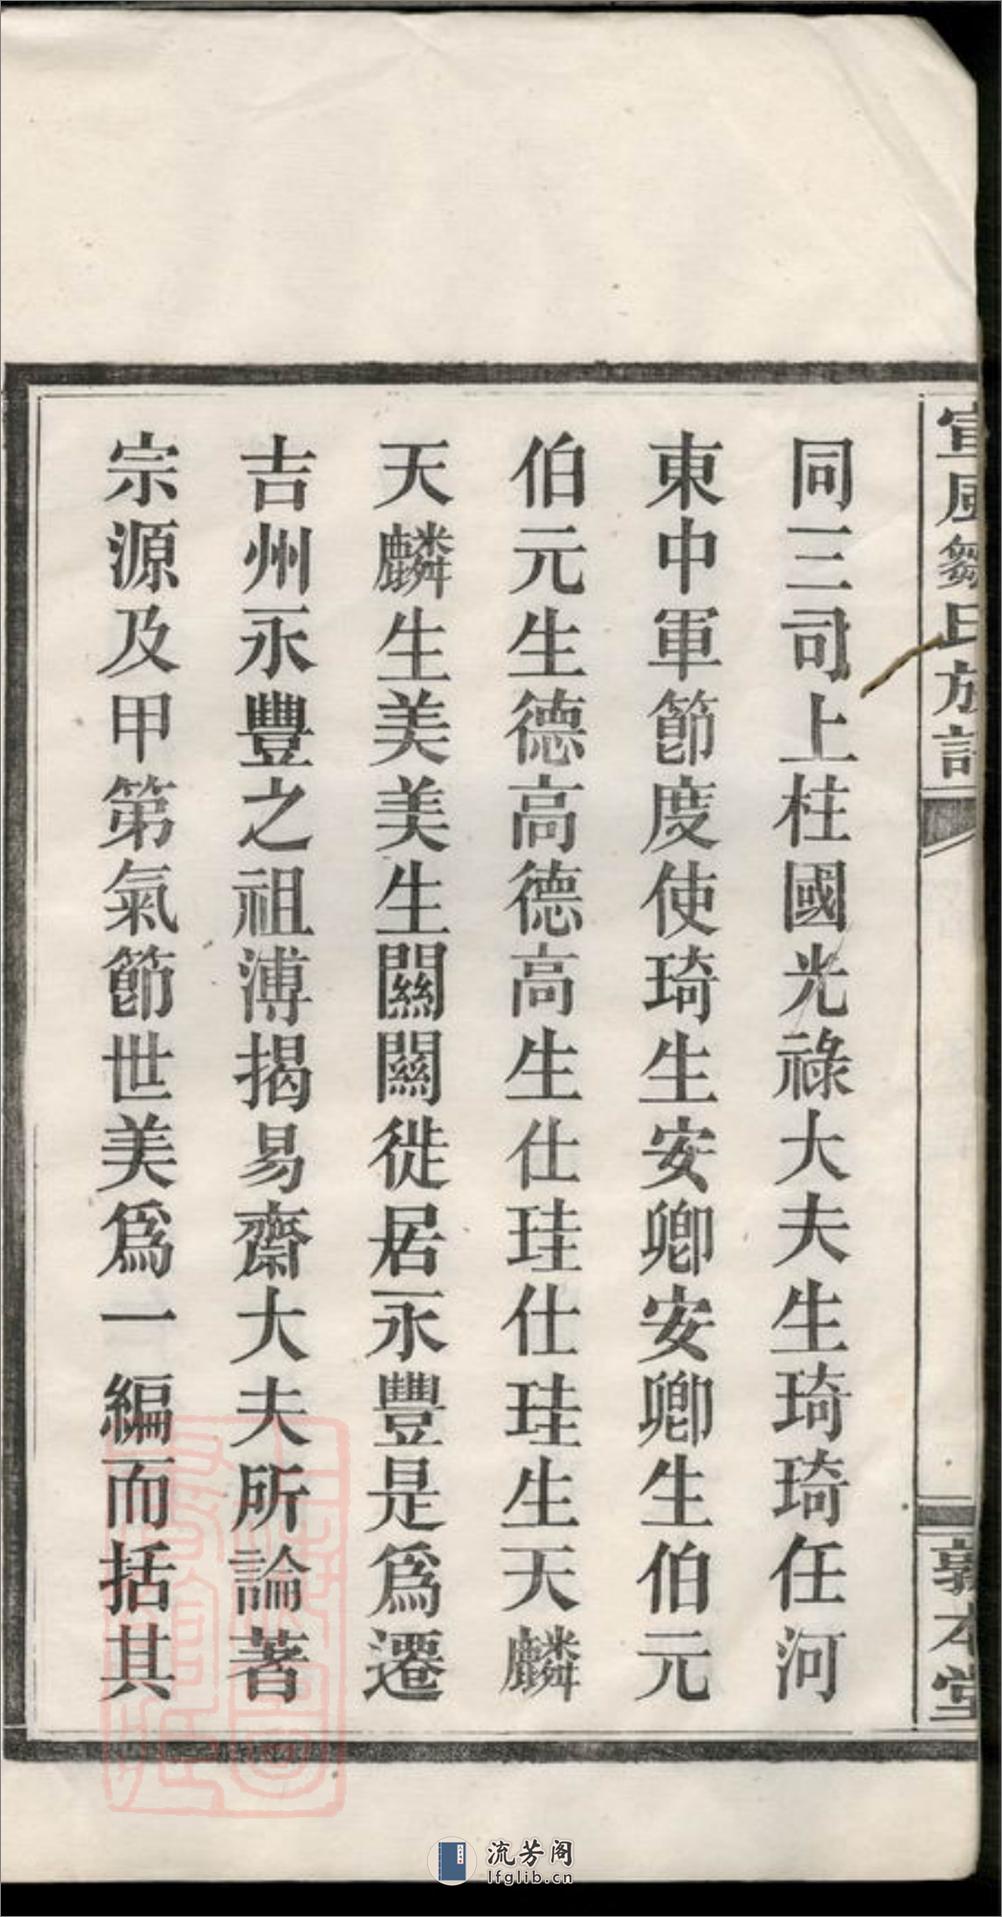 同三司上柱國光祿大夫生琦琦任河
東中軍節度使琦生安卿安卿生伯元
伯元生德高德高生仕珪仕珪生天麟
天麟生美美生關關徙居永豐是爲遷
吉州永豐之祖溥揭易齋大夫所論著
宗源及甲第氣節世美爲一編而括其
宜風鄒氏族譜
敦本堂
流芳阁
lfglib.cn